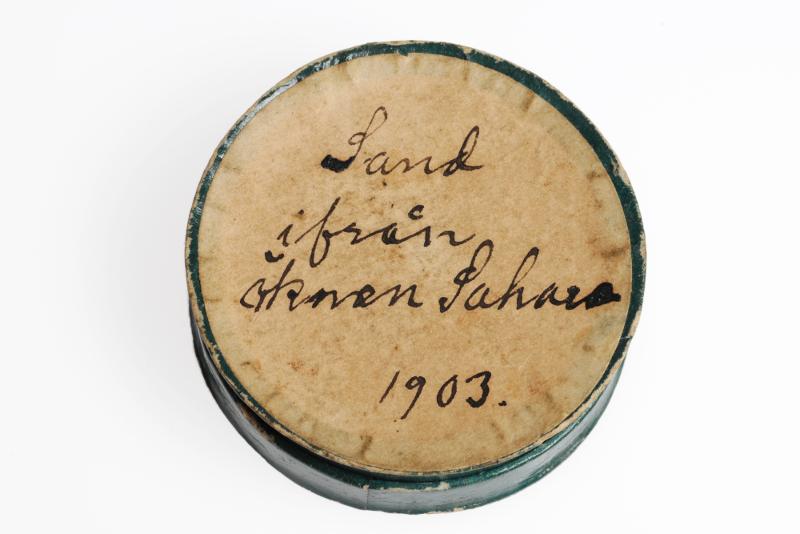 Sand
ifrån
öknen Sahara
1903.